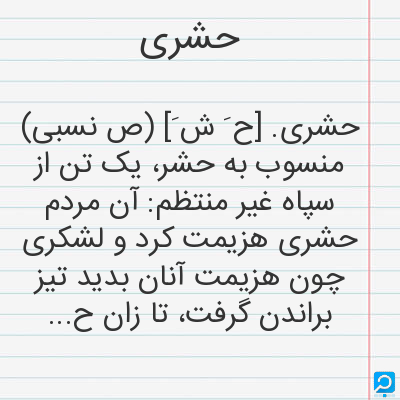 حشری
حشری. [ح َ ش َ] (ص نسبی)
منسوب به حشر، یک تن از
سپاه غیر منتظم: آن مردم
حشری هزیمت کرد و لشکری
چون هزیمت آنان بدید تیز
براندن گرفت، تا زان ح...